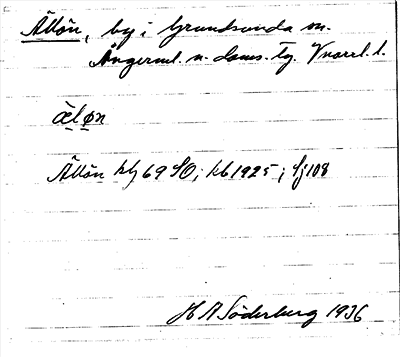 Ällön, by i Grundsunda sn.
Ångerml. n. doms. tg. Vnorrl. l.
ä̀l øn
Ällön kbg 69 SO; kb 1925; Sj 108
H A Söderberg 1936